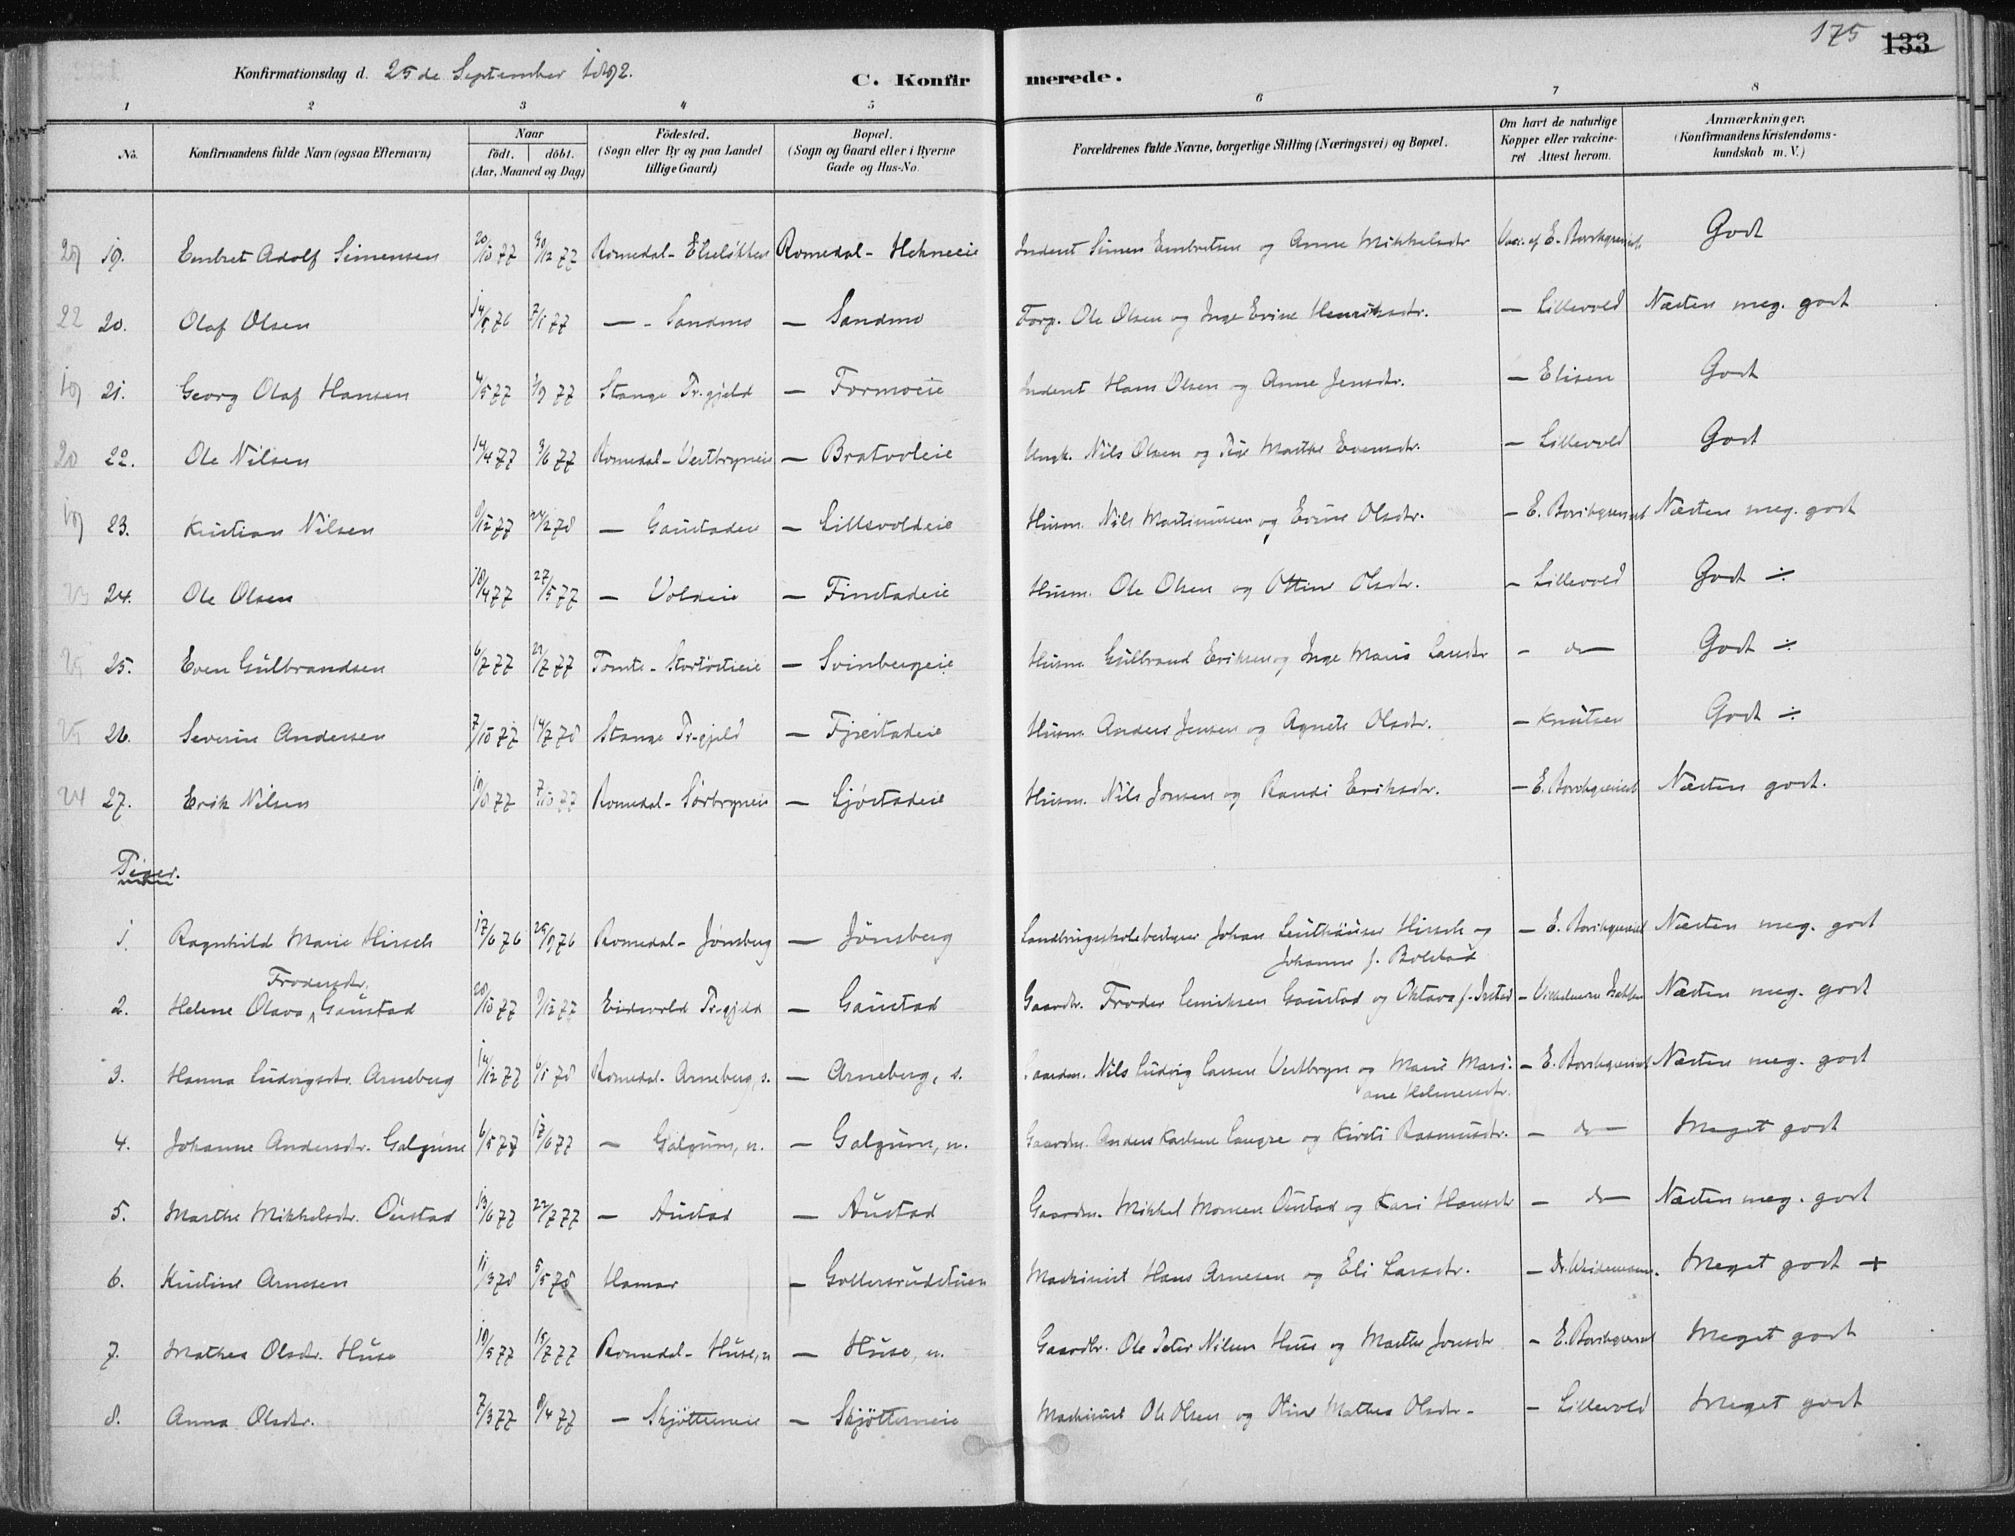 175 133
Konfirmationsdag d. 25de September 1892.
C. Konfirmerede.
1 2 3 4 5 6 7 8
No.
Konfirmandens fulde Navn (ogsaa Efternavn)
Naar
födt. döbt.
(Aar, Maaned og Dag)
Födested.
(Sogn eller By og paa Landet
tillige Gaard)
Bopæl.
(Sogn og Gaard eller i Byerne
Gade og Hus-No.
Forældrenes fulde Navne, borgerlige Stilling (Næringsvei) og Bopæl.
Om havt de naturlige
Kopper eller vakcine-
ret Attest herom.
Anmærkninger.
(Konfirmandens Kristendoms-
kundskab m. V.)
19. Embret Adolf Simensen 20/10 77 30/12 77 Romedal - Romedal - Hekneeie Inderst Simen Embretsen og Anne Mikkelsdtr Vac. af E. Godt
22 20. Olaf Olsen 7/1 77 — - Sandmo — Sandmo Forp. Ole Olsen og Inge Evine Henriksdtr. — Lillevold Næsten meg. godt
19 21. Georg Olaf Hansen 4/5 77 Stange Pr.gjeld — Formoeie Inderst Hans Olsen og Anne Jensdtr. — Elisen Godt
20 22. Ole Nilsen 14/4 77 3/6 77 Romedal - Vestbryneie — Bratvoleie Ungk. Nils Olsen og Pige Marthe Evensdtr. — Lillevold Godt
19 23. Kristian Nilsen 9/12 77 24/2 78 — Gaustadeie — Lillevoldeie Husm. Nils Martinussen og Evine Olsdtr. — E. Næsten meg. godt
23 24. Ole Olsen 18/4 77 27/5 77 — Voldeie — Finstadeie Husm. Ole Olsen og Ottine Olsdtr. — Lillevold Godt ÷
25 25. Even Gulbrandsen 6/7 77 Tomte - — Svinbergeie Husm. Gulbrand Eriksen og Inge Marie Larsdtr — do — Godt ÷
25 26. Severin Andersen 7/10 77 14/7 78 Stange Pr.gjeld — Fjæstadeie Husm. Anders Jensen og Agnete Olsdtr. — Knutsen Godt ÷
24 27. Erik Nilsen 19/8 77 7/10 77 Romedal - Sörbryneie — Sjöstadeie Husm. Nils Jonsen og Randi Eriksdtr. — E. Næsten godt.
Piger.
1. Ragnhild Marie Hirsch 17/6 76 Romedal - Jønsberg — Jönsberg Landbrugsskolebestyrer Johan Hirsch og — E. Næsten meg. godt
Johanne f. Bolstad
Frodesdtr.
2. Helene Olava Gaustad 20/10 77 9/12 77 Eidsvold Pr.gjeld — Gaustad Gaardbr. Froder Gaustad og Oktava f. — Næsten meg. godt
3. Hanna Ludvigsdtr. Arneberg 14/12 77 6/1 78 Romedal - Arneberg, s. — Arneberg, s. Nils Ludvig Larsen Vestbryn og Marie Mari- — E. Næsten meg. godt
ane Helmersdtr.
4. Johanne Andersdtr. Galgum 6/5 77 17/6 77 — Galgum, n. — Galgum, n. Gaardm. Anders Karlsen og Kirsti Rasmusdtr. — do — Meget godt
5. Marthe Mikkelsdtr. Oustad 13/6 77 22/7 77 — Austad — Austad Gaardm. Mikkel Monsen Oustad og Kari Hansdtr — do — Næsten meg. godt
6. Kristine Arnesen 11/3 78 5/5 78 Hamar — Gollersrudstuen Maskinist Hans Arnesen og Eli Larsdtr. — Dr. Meget godt +
7. Mathea Olsdtr. Huse 19/5 77 15/7 77 Romedal - Huse, n — Huse, n. Gaardbr. Ole Peter Nilsen Huse og Marthe Jonsdtr — E. Meget godt
8. Anna Olsdtr. 7/3 77 8/4 77 — Skjötterneie — Skjötterneie Maskinist Ole Olsen og Oline Mathea Olsdtr - — Lillevold Meget godt